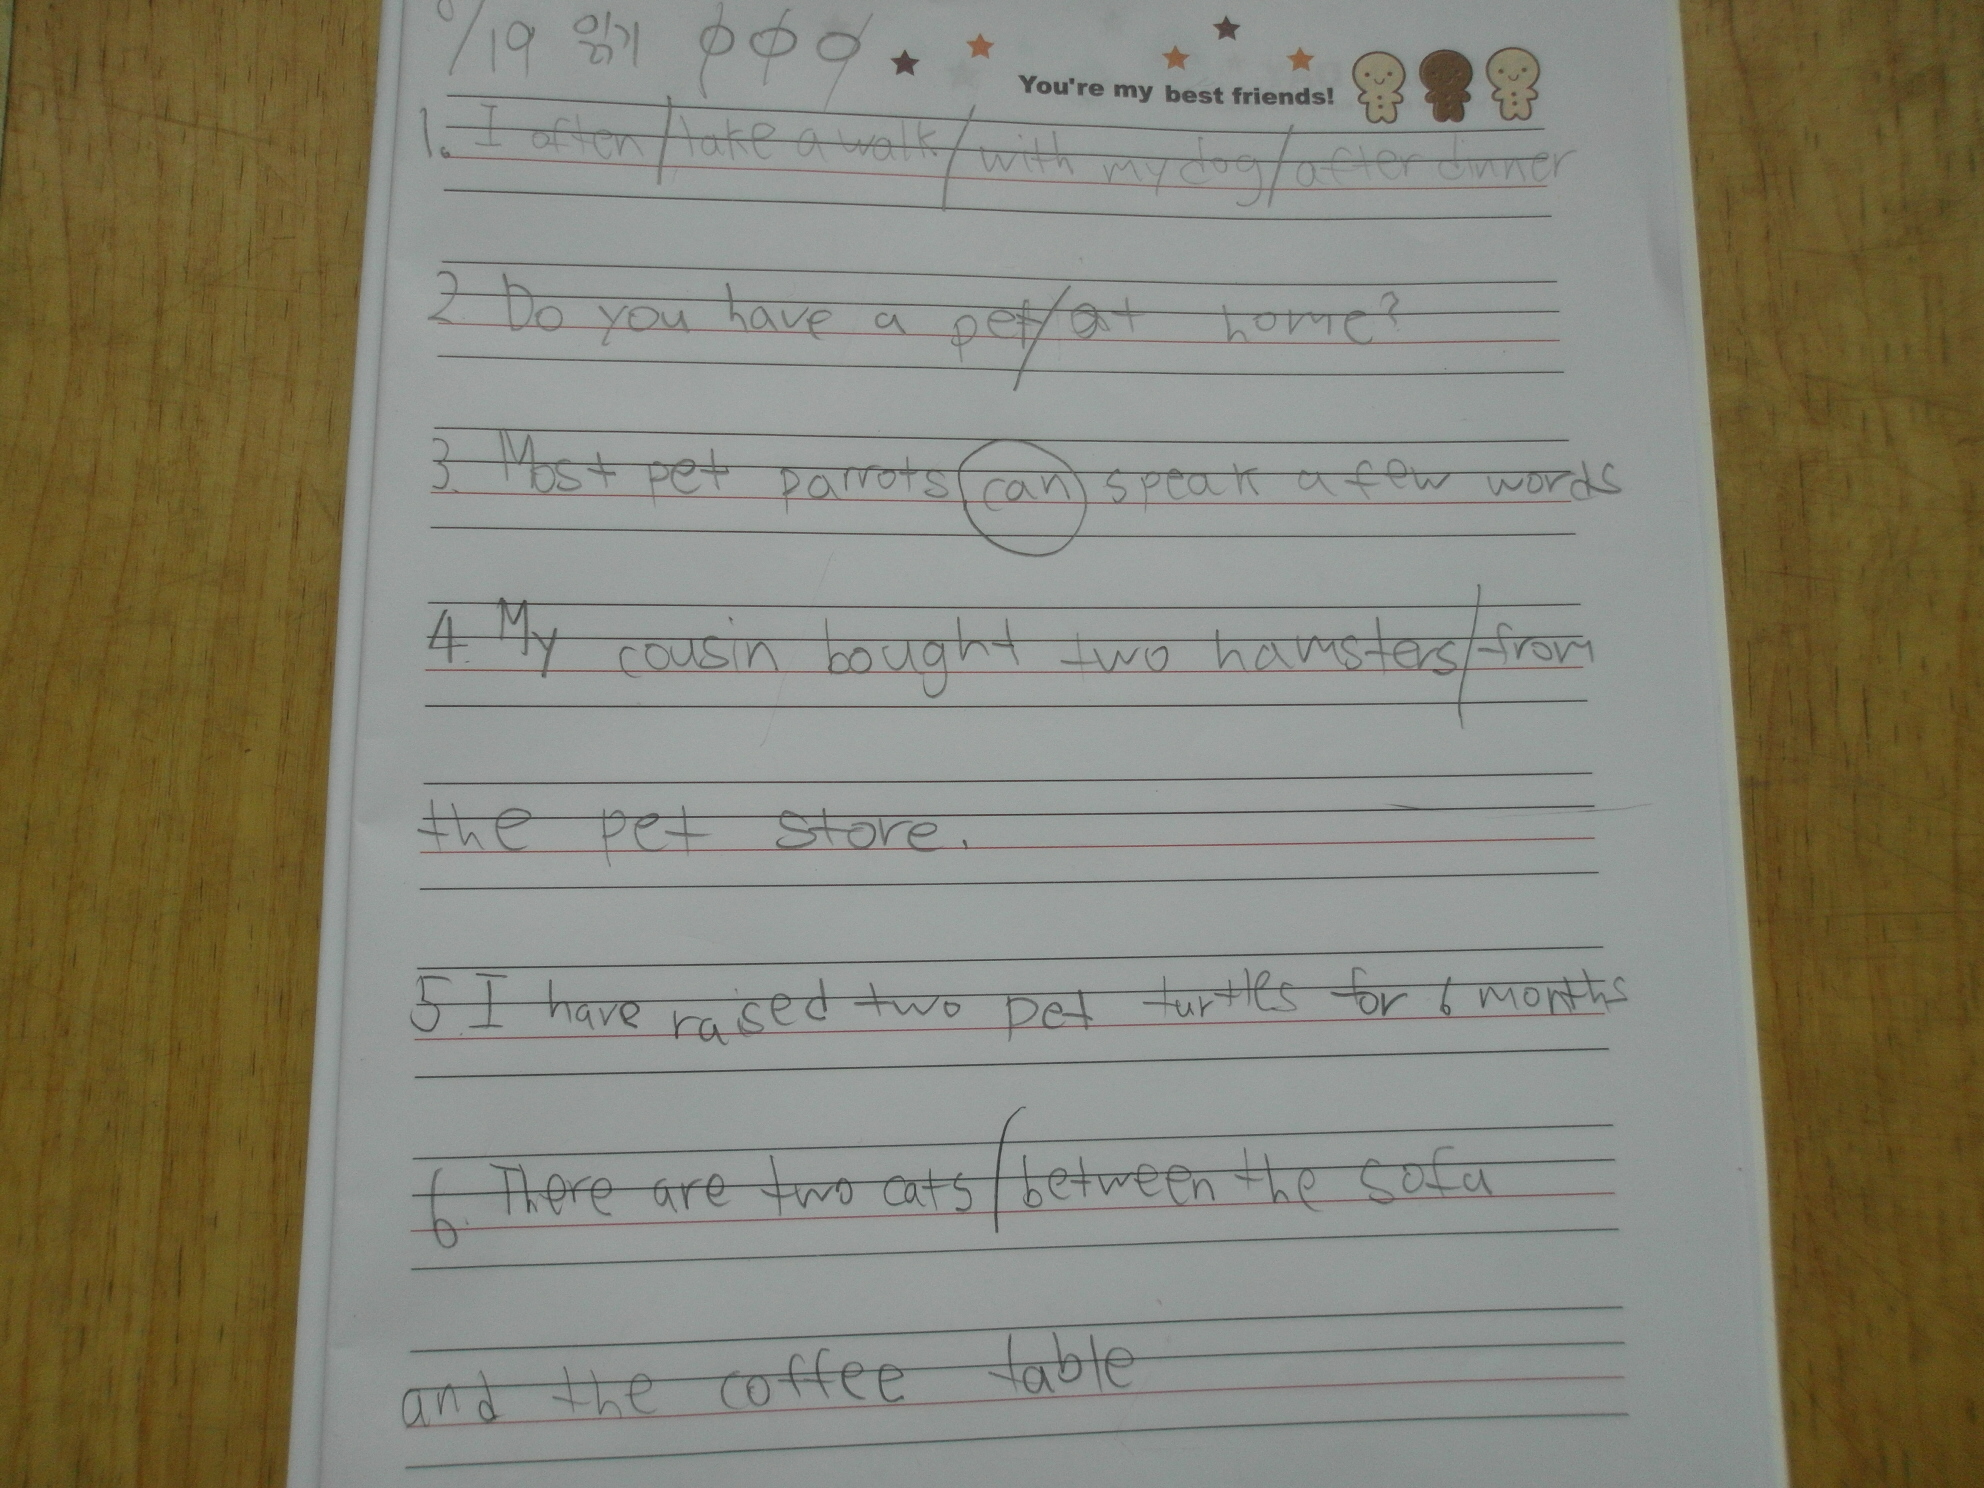 /19 읽기
You're my best friends!
1. I often / take a walk / with my dog / after dinner
2 Do you have a pet / at home?
3. Most pet parrots can speak a few words
4. My cousin bought two hamsters / from
the pet store.
5. I have raised two pet turtles for 6 months
6. There are two cats / between the sofa
and the coffee table